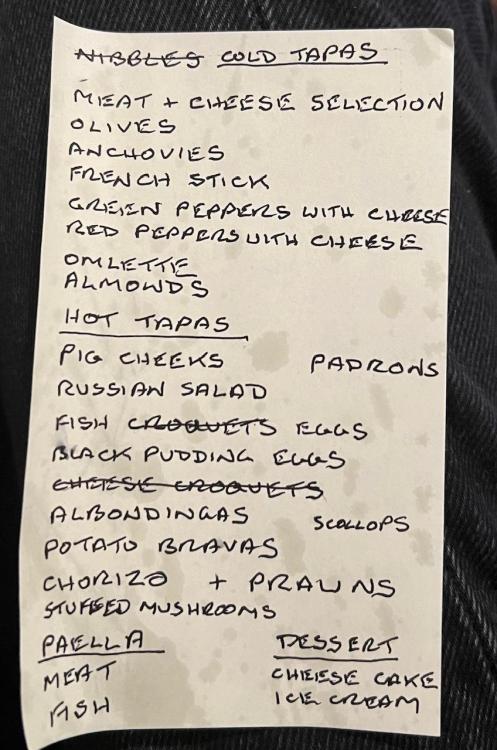 NIBBLES COLD TAPAS
MEAT + CHEESE SELECTION
OLIVES
ANCHOVIES
FRENCH STICK
GREEN PEPPERS WITH CHEESE
RED PEPPERS WITH CHEESE
OMLETTE
ALMONDS
HOT TAPAS
PIG CHEEKS PADRONS
RUSSIAN SALAD
FISH CROQUETS EGGS
BLACK PUDDING EGGS
CHEESE CROQUETS
ALBONDINGAS SCOLLOPS
POTATO BRAVAS
CHORIZO + PRAWNS
STUFFED MUSHROOMS
PAELLA DESSERT
MEAT CHEESE CAKE
FISH ICE CREAM